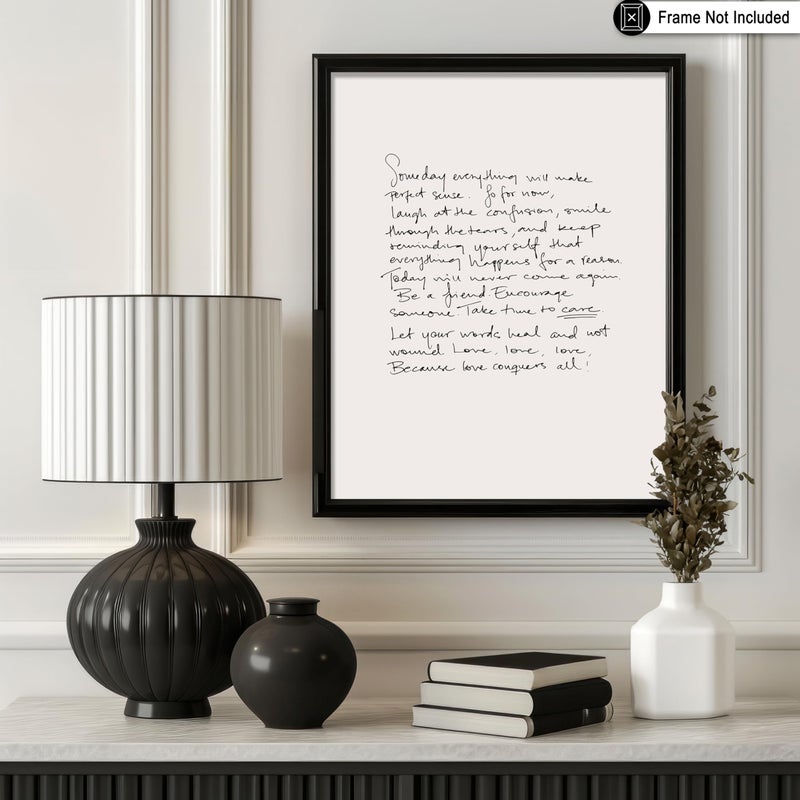 Frame Not Included
Someday everything will make
perfect sense. So for now,
laugh at the confusion, smile
through the tears, and keep
reminding yourself that
everything happens for a reason.
Today will never come again.
Be a friend. Encourage
someone. Take time to care.
Let your words heal and not
wound. Love, love, love,
Because love conquers all!